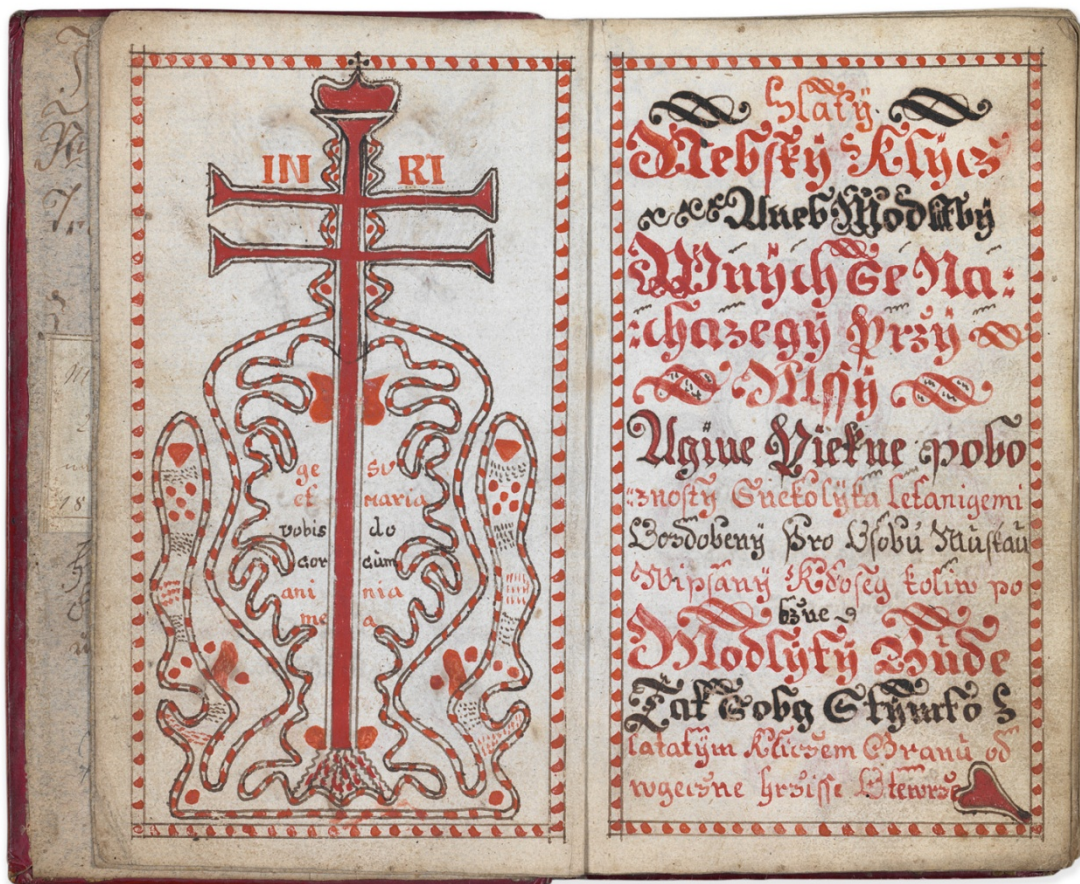 IN RI
ge SU
et maria
vobis do
cor cum
ani nia
me a
Zlatÿ
Nebskÿ Klÿcz
Aneb Modlitbÿ
Wnÿch Se Na:
:chazegÿ Przÿ
Mssÿ
Agine Piekne pobo
:znostÿ Snekolÿka letanigemi
Vozdobenÿ Pro Vsobu Mužskau
Wipsanÿ Kdoseg koliw po
bzne
Modlÿtÿ Bude
Tak Sobg Stÿmto Z
latatÿm Kliczem Branu od
wgeczne hrzisse Otewrze